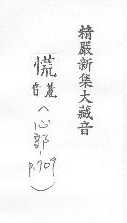 精嚴新集大藏音
慌
音
(心部
p.709)